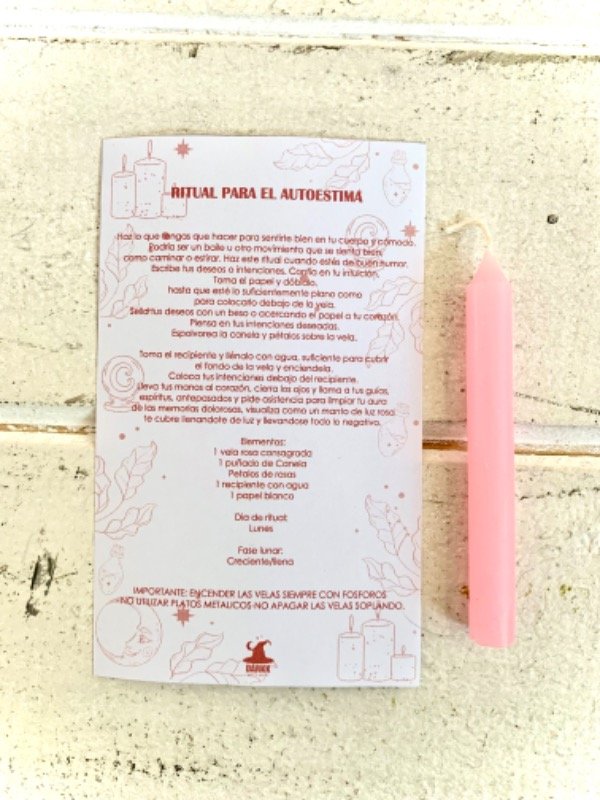 RITUAL PARA EL AUTOESTIMA
Haz lo que tengas que hacer para sentirte bien en tu cuerpo y cómodo.
Podría ser un baile u otro movimiento que se sienta bien,
como caminar o estirar. Haz este ritual cuando estés de buen humor.
Escribe tus deseos o intenciones. Confía en tu intuición.
Toma el papel y dóblalo,
hasta que esté lo suficientemente plano como
para colocarlo debajo de la vela.
Sella tus deseos con un beso o acercando el papel a tu corazón.
Piensa en tus intenciones deseadas.
Espolvorea la canela y pétalos sobre la vela.
Toma el recipiente y llénalo con agua, suficiente para cubrir
el fondo de la vela y enciendela.
Coloca tus intenciones debajo del recipiente.
Lleva tus manos al corazón, cierra los ojos y llama a tus guías,
espíritus, antepasados y pide asistencia para limpiar tu aura
de las memorias dolorosas, visualiza como un manto de luz rosa
te cubre llenandote de luz y llevandose todo lo negativo.
Elementos:
1 vela rosa consagrada
1 puñado de Canela
Petalos de rosas
1 recipiente con agua
1 papel blanco
Dia de ritual:
Lunes
Fase lunar:
Creciente/llena
IMPORTANTE: ENCENDER LAS VELAS SIEMPRE CON FOSFOROS
NO UTILIZAR PLATOS METALICOS-NO APAGAR LAS VELAS SOPLANDO.